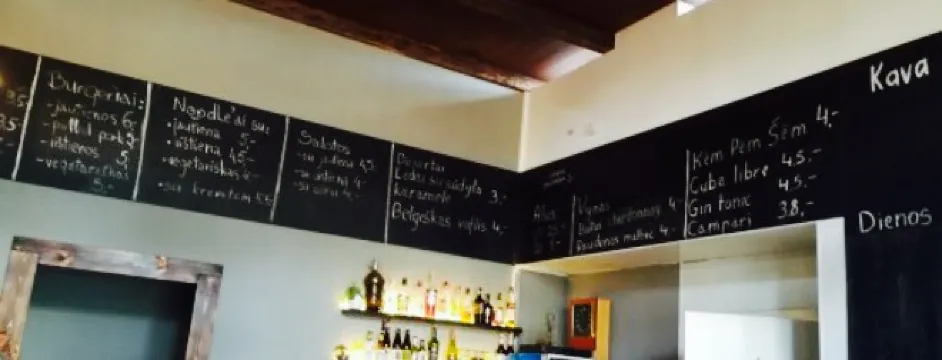 35
35.-
Burgeriai:
-jautienos 6.-
-pulled pork 5.-
-vištienos 5
-vegetariškas
5.-
Noodle'ai su:
-jautiena 5.-
-vištiena 4,5.-
-vegetariškas 4.-
-su krevetėm 4,5.-
Salotos
-su jautiena 4,5
-su vištiena 4.-
-su sūriu 4.-
Desertai
Ledai su sūdyta
karamele 3.-
Belgiškas vaflis 4.-
Alus
Vynas
Baltas chardonnay 4.-
Raudonas malbec 4.-
Kem Pem Šem 4.-
Cuba libre 4.5.-
Gin tonic 4.5.-
Campari 3.8.-
Kava
Dienos